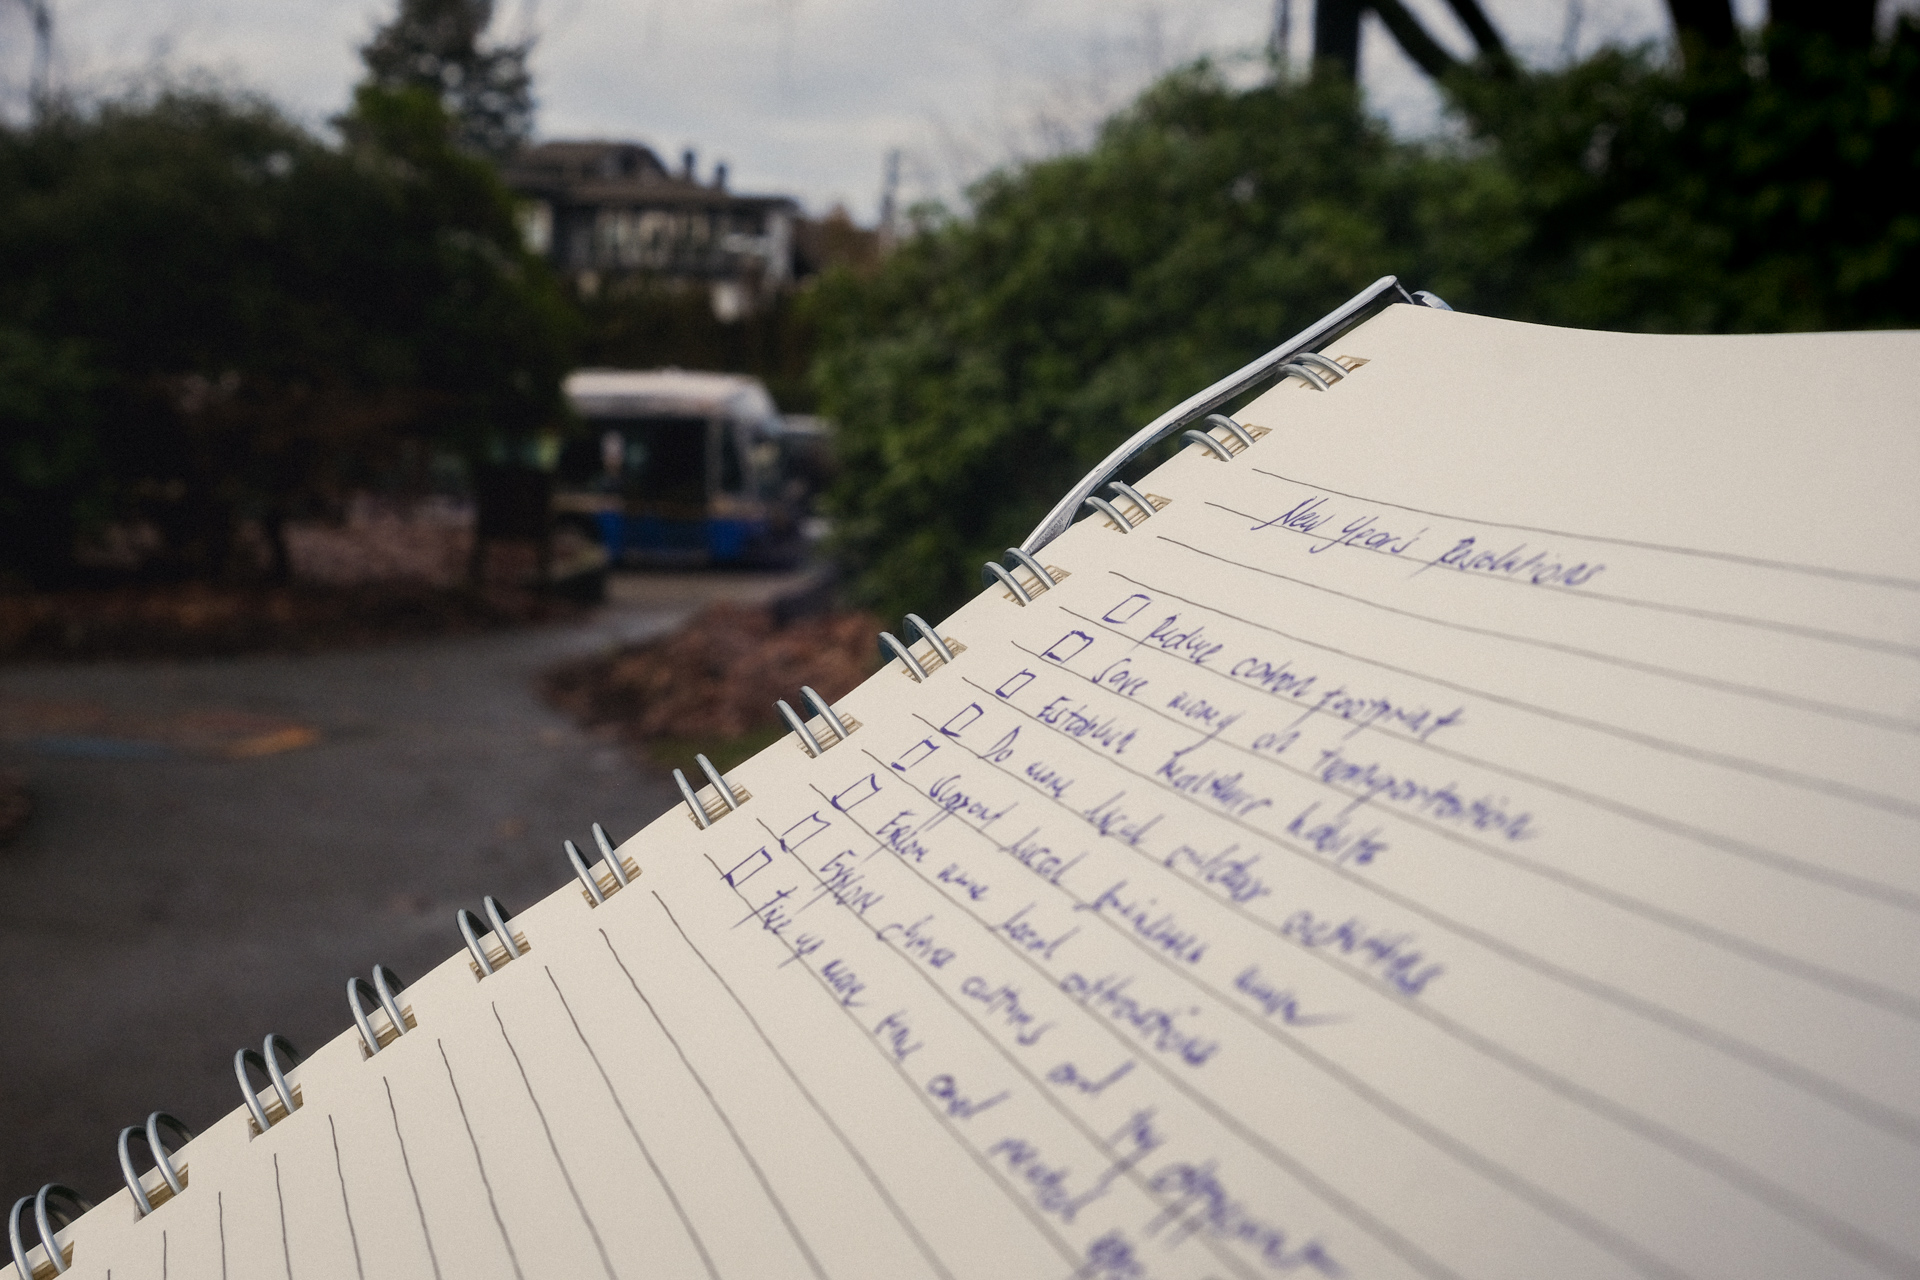 New Year's Resolutions
☐ Reduce carbon footprint
☐ Save money on transportation
☐ Establish healthier habits
☐ Do more local outdoor activities
☐ Support local businesses
☐ Explore more local attractions
☐ Explore diverse cultures and try
☐ Free up more time and mental